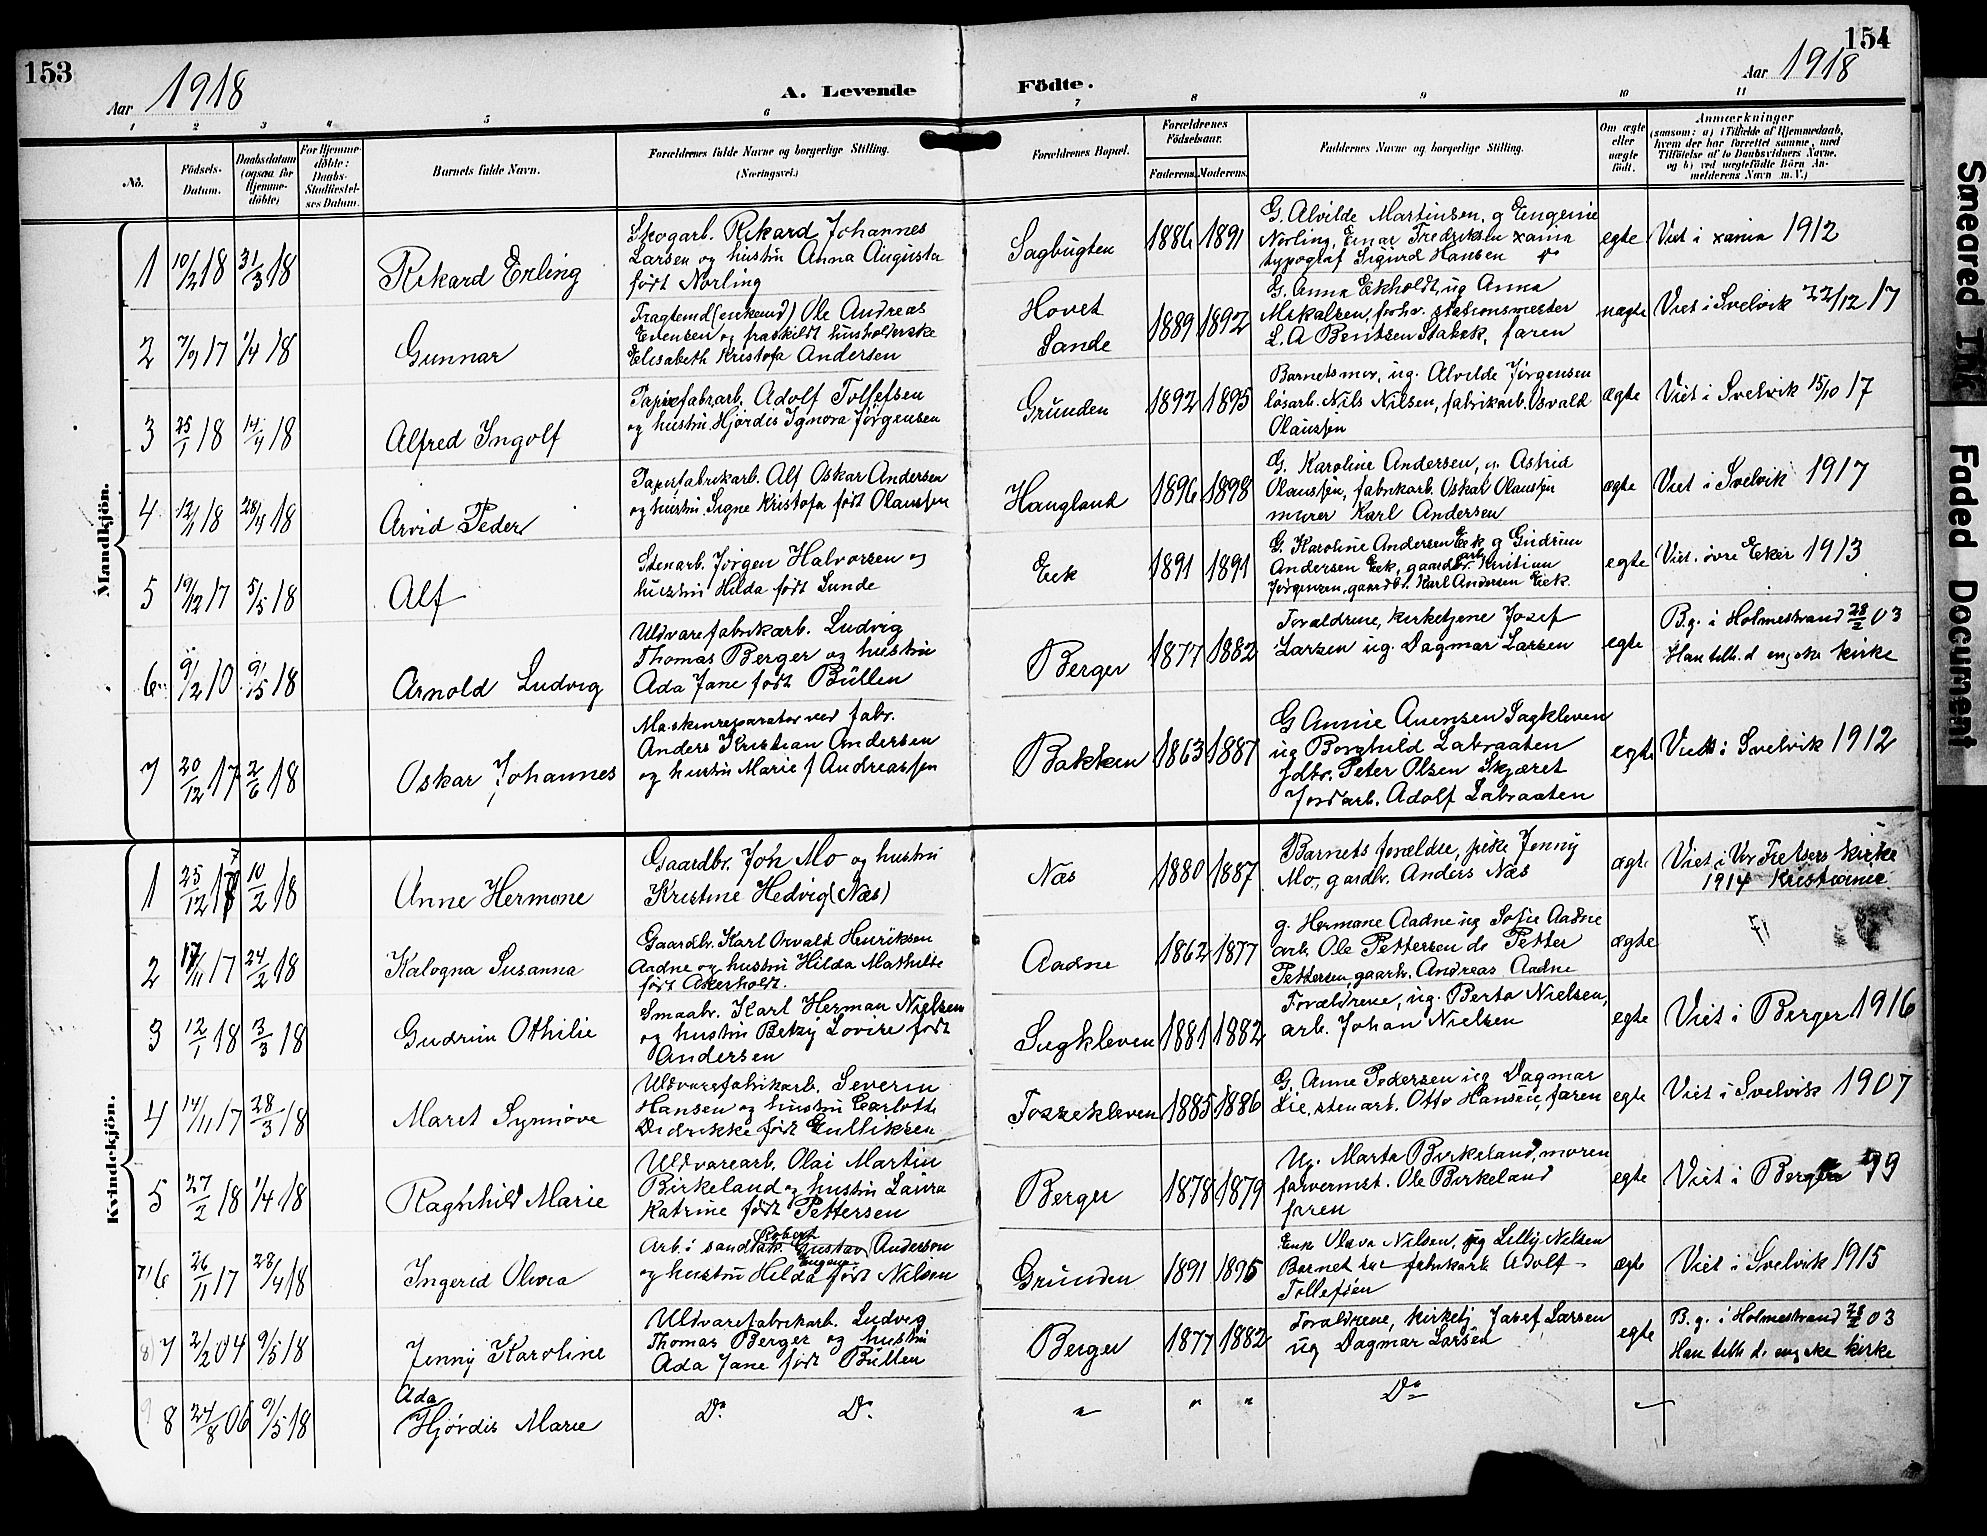 153
Aar 1918
A. Levende
Födte.
Aar 1918
154
1 2 3 4 5 6 7 8 9 10 11
No.
Födsels-
Datum.
Daabsdatum
(ogsaa for
Hjemme-
döbte)
For Hjemme-
döbte:
Daabs-
Stadfæstel-
ses Datum.
Barnets fulde Navn.
Forældrenes fulde Navne og borgerlige Stilling.
(Næringsvei.)
Forældrenes Bopæl.
Forældrenes
Födselsaar.
Faderens. Moderens.
Faddernes Navne og borgerlige Stilling.
Om ægte
eller
uægte
födt.
Anmærkninger
(saasom: a) i Tilfælde af Hjemmedaab,
hvem der har forrettet samme, med
Tilföielse af to Daabsvidners Navne.
og b) ved uægtefödte Börn An-
melderens Navn m. V.)
Mandkjön.
1 10/2 18 31/3 18 Rikard Erling
Skogarb. Rikard Johannes
Larsen og hustru Anna Augusta
født Norling
Sagbugten 1886 1891
G. Alvilde Martinsen, g Eugenie
Norling, Einar Fredriksen xania
typograf Sigurd Hansen
egte Viet i xania 1912
2 7/9 17 1/4 18 Gunnar
Fragtemd (enkemd) Ole Andreas
Evensen og fraskildt husholderske
Elisabeth Kristofa Andersen
Hovet
Sande
1889 1892
G. Anna Ekholdt, ug Anna
Mikalsen, forhv. stationsmester
L. A Bentsen Stabæk, faren
uægte Viet i Svelvik 22/12 17
3 25/1 18 14/4 18 Alfred Ingolf
Papirfabrarb. Adolf Tollefsen
og hustru Hjørdis Ignora Jørgensen
Grunden 1892 1895
Barnets mor, ug. Alvilde Jørgensen
løsarb. Nils Nilsen, fabrikarb. Osvald
Olaussen
ægte Viet i Svelvik 15/10 17
4 12/1 18 28/4 18 Arvid Peder
Papirfabrikarb. Alf Oskar Andersen
og hustru Signe Kristofa født Olaussen
Haugland 1896 1898
G. Karoline Andersen, g. Astrid
Olaussen, fabrikarb. Oskar Olaussen
murer Karl Andersen
ægte Viet i Svelvik 1917
5 19/12 17 5/5 18 Alf
Stenarb. Jørgen Halvorsen og
hustru Hilda født Lunde
Eek 1891 1891
G. Karoline Andersen Eek g Gudrun
Andersen Eek, gaardbr. Kristian
Jørgensen, gaardbr. Karl Andersen Eek.
egte Viet i øvre Eker 1913
6 9/2 10 9/5 18 Arnold Ludvig
Uldvarefabrikarb. Ludvig
Thomas Berger og hustru
Ada Jane født Bullen
Berger 1877 1882
Forældrene, kirketjene Josef
Larsen ug. Dagmar Larsen
egte B.g. i Holmestrand 28/2 03
Han tilh. d. engske kirke
7 20/12 17 2/6 18 Oskar Johannes
Maskinreparatør ved fabr.
Anders Kristian Andersen
og hustru Marie f Andreassen
Bakken 1863 1887
G Annie Auensen Sagkleven
ug Borghild Labraaten
fdbr. Peter Olsen Skjæret
Jordarb. Adolf Labraaten
egte Viet i Svelvik 1912
Kvindekjön.
1 25/12 17 10/2 18 Anne Hermone
Gaardbr. Joh Mo og hustru
Kristine Hedvig (Næs)
Næs 1880 1887
Barnets forældre, pike Jenny
Mo, gardbr. Anders Næs
ægte Viet i Vor Frelsers kirke
1914 Kristiania
2 17/11 17 24/2 18 Kalogna Susanna
Gaardbr. Karl Osvald Henriksen
Aadne og hustru Hilda Mathilde
født Akerholt.
Aadne 1862 1877
g. Hermane Aadne ug Sofie Aadne
arb. Ole Pettersen do Petter
Pettersen, gaarbr. Andreas Aadne
ægte
3 12/1 18 3/3 18 Gudrun Othilie
Smaabr. Karl Herman Nielsen
og hustru Betzy Lovise født
Andersen
Sagkleven 1881 1882
Forældrene, ug. Berta Nielsen,
arb. Johan Nielsen
egte Viet i Berger 1916
4 14/11 17 28/3 18 Marit Synnøve
Uldvarefabrikarb. Severin
Hansen og hustru Carlotte
Didrikke født Gulliksen
Fossekleven 1885 1886
G. Anne Pedersen ug Dagmar
Lie, stenarb. Otto Hansen, faren
egte Viet i Svelvik 1907
5 27/2 18 1/4 18 Ragnhild Marie
Uldvarearb. Olai Martin
Birkeland og hustru Laura
Katrine født Pettersen
Berger 1878 1879
Ug. Marta Birkeland, moren
farvermst. Ole Birkeland
faren
egte Viet i Berger 99
6 26/11 17 28/4 18 Ingerid Olivia
Arb. i sandtak. Robert Gustav Anderson
og hustru Hilda Eugenie født Nilsen
Grunden 1891 1895
Enke Olava Nilsen, ug Lilly Nilsen
fabrikarb. Adolf
Tollefsen
ægte Viet i Svelvik 1915
8) 7 2/2 04 9/5 18 Jenny Karoline
Uldvarefabrikarb. Ludvig
Thomas Berger og hustru
Ada Jane født Bullen
Berger 1877 1882
Forældrene, kirketj Josef Larsen
ug Dagmar Larsen
egte B.g. i Holmestrand 28/2 03
Han tilh. d. engske kirke
9 8 24/8 06 9/5 18 Ada
Hjørdis Marie
Do Do " " " Do
Smeared Ink
Faded Document